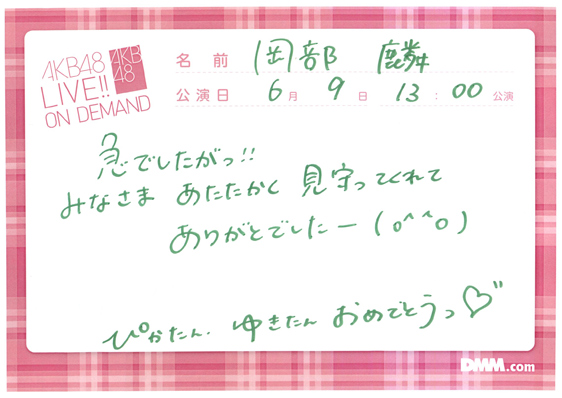 AKB48
LIVE!!
ON DEMAND
AKB
48
名前 岡部 麟
公演日 6月 9日 13:00 公演
急でしたがっ!!
みなさま あたたかく 見守ってくれて
ありがとでしたー (o^^o)
ぴかたん. ゆきたん おめでとうっ♡"
DMM.com